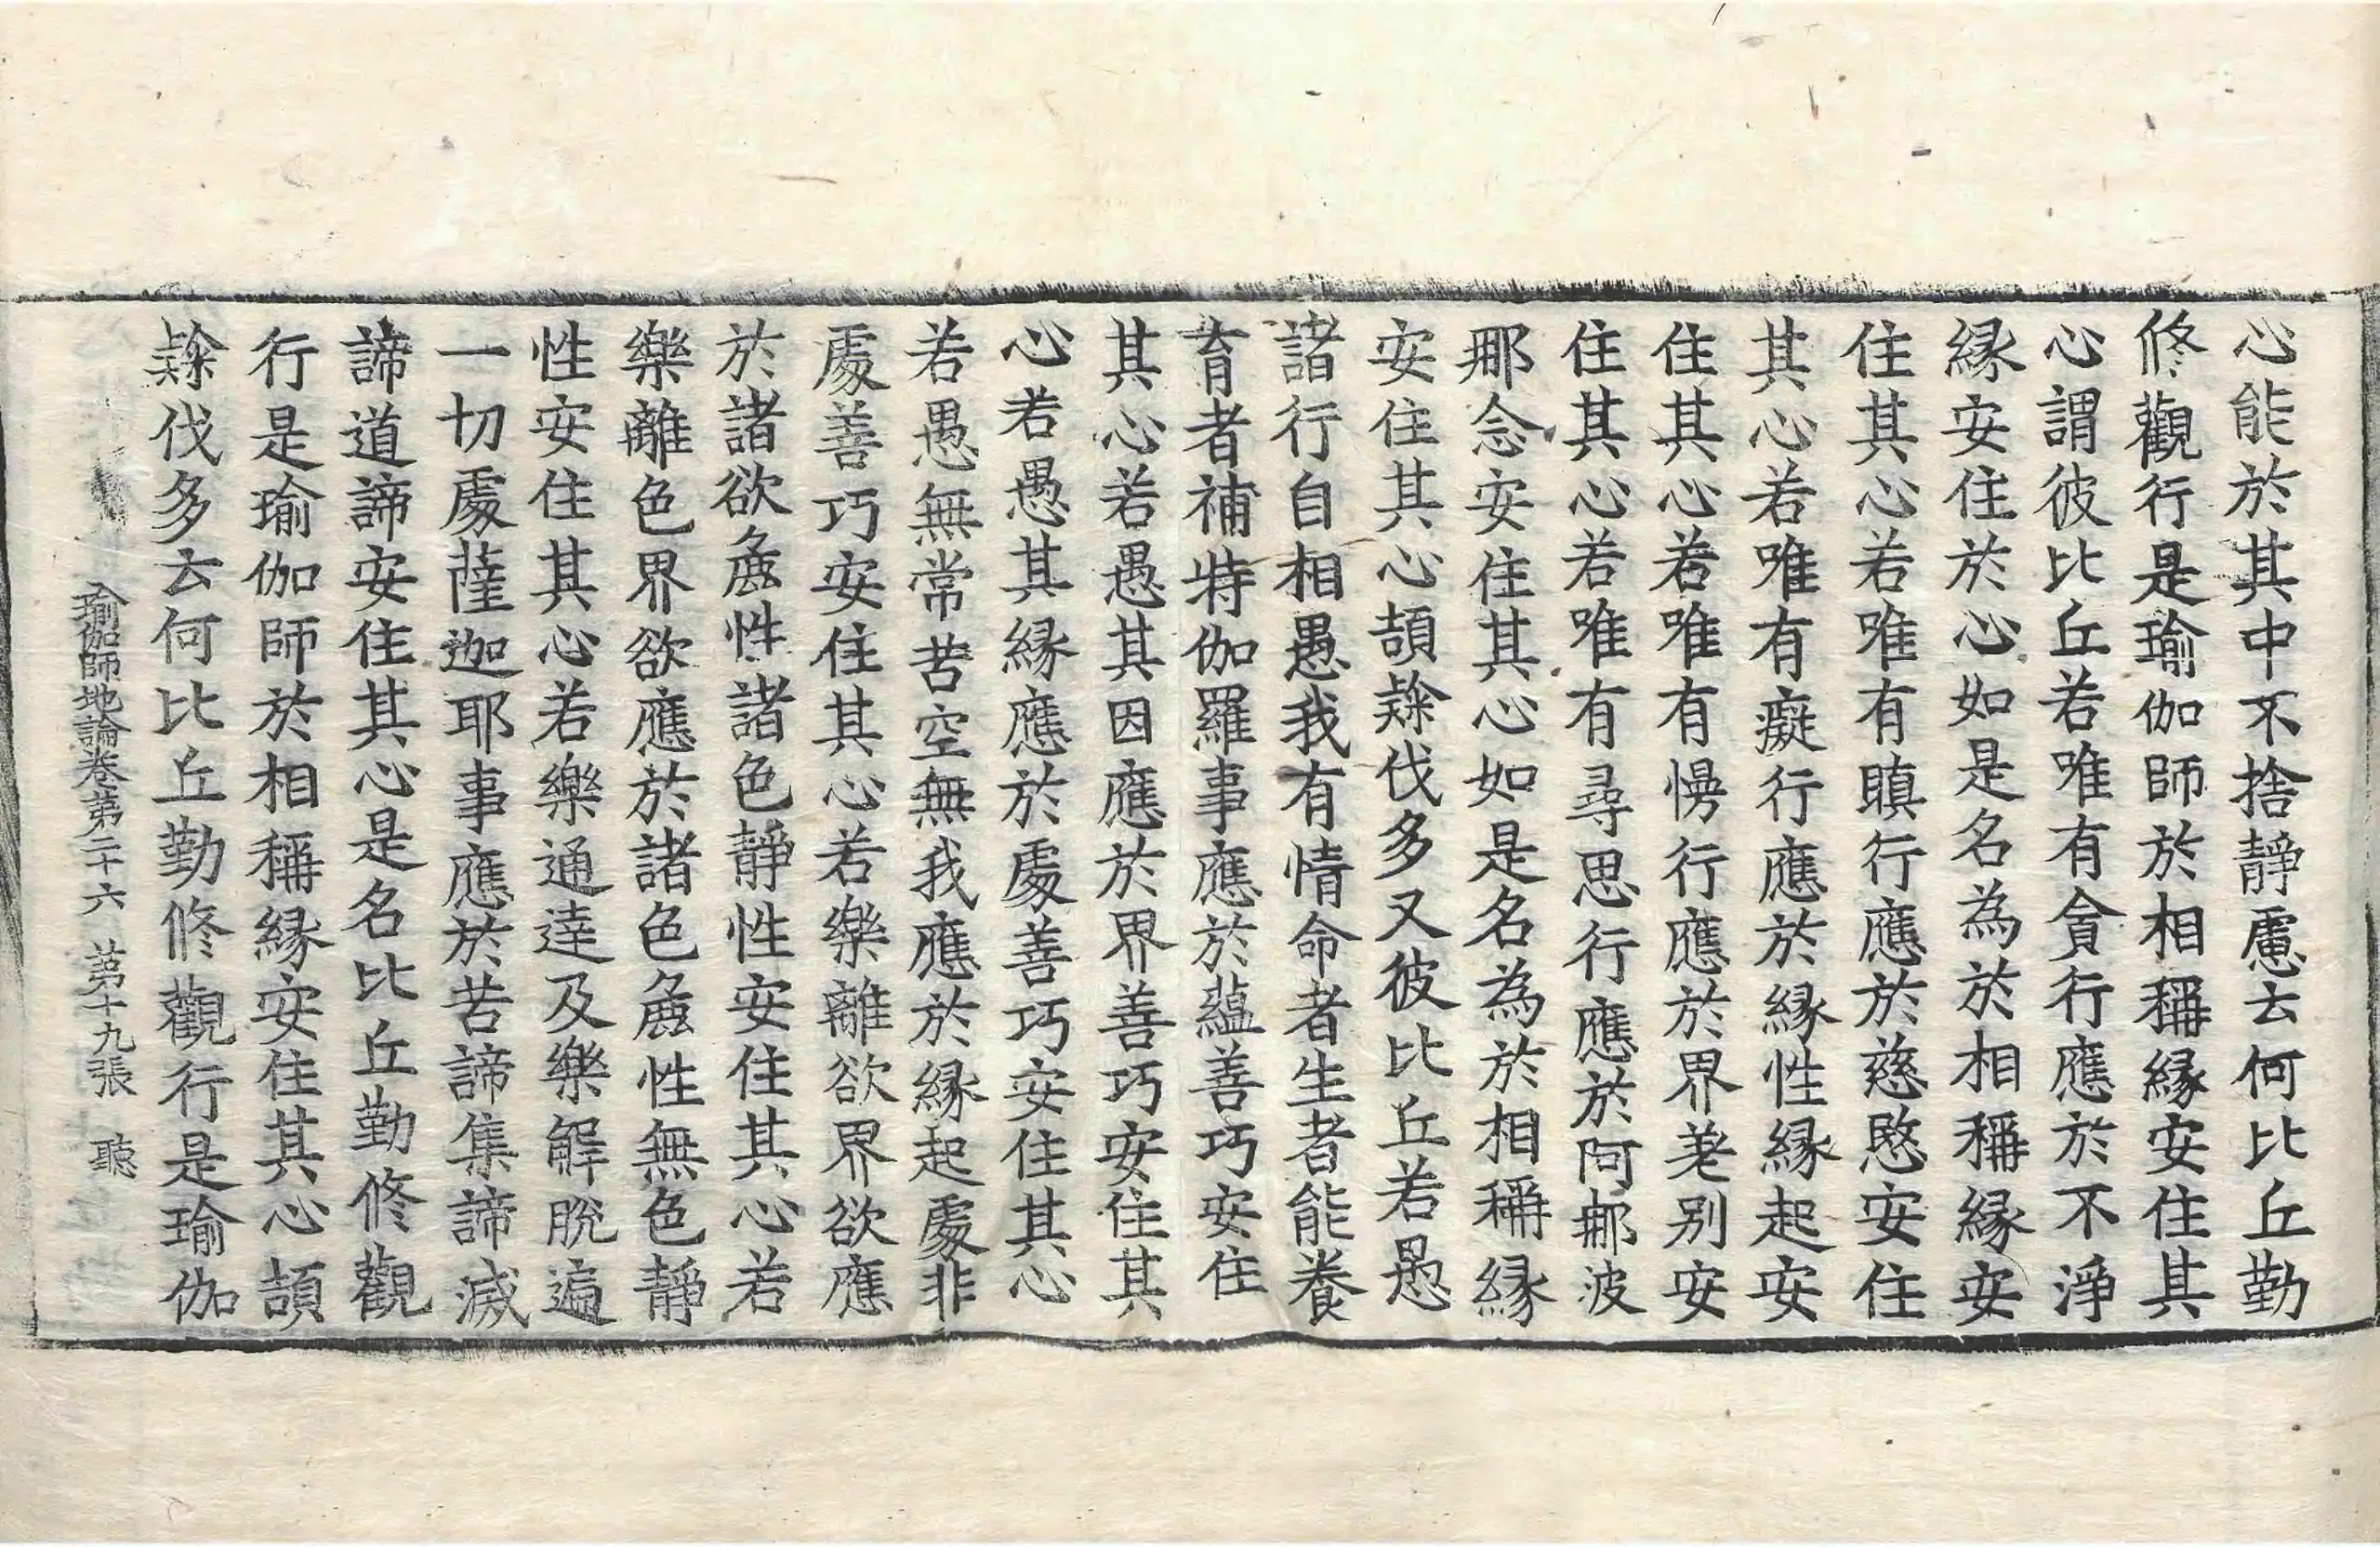 心能於其中不捨静慮云何比丘勤
修觀行是瑜伽師於相稱緣安住其
心謂彼比丘若唯有貪行應於不淨
緣安住於心如是名為於相稱緣安
住其心若唯有瞋行應於慈愍安住
其心若唯有癡行應於緣性緣起安
住其心若唯有慢行應於界差别安
住其心若唯有尋思行應於阿那波
那念安住其心如是名為於相稱緣
安住其心頡隸伐多又彼比丘若愚
諸行自相愚我有情命者生者能養
育者補特伽羅事應於藴善巧安住
其心若愚其因應於界善巧安住其
心若愚其緣應於處善巧安住其心
若愚無常苦空無我應於緣起處非
處善巧安住其心若樂離欲界欲應
於諸欲麁性諸色静性安住其心若
樂離色界欲應於諸色麁性無色静
性安住其心若樂通達及樂解脫遍
一切處薩迦耶事應於苦諦集諦滅
諦道諦安住其心是名比丘勤修觀
行是瑜伽師於相稱緣安住其心頡
隸伐多云何比丘勤修觀行是瑜伽
瑜伽師地論卷第二十六 第十九張 聽